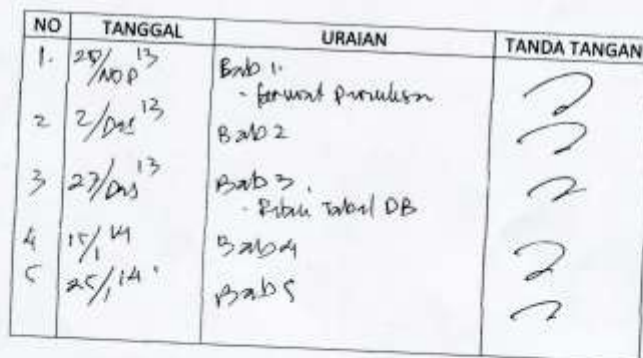 NO TANGGAL URAIAN TANDA TANGAN
1. /NOP 13 Bab 1.
- format penulisan
2 2/Des 13 Bab 2
3 23/Des 13 Bab 3.
- Tabel DB
4 15/1 14 Bab 4
5 25/1 14 Bab 5